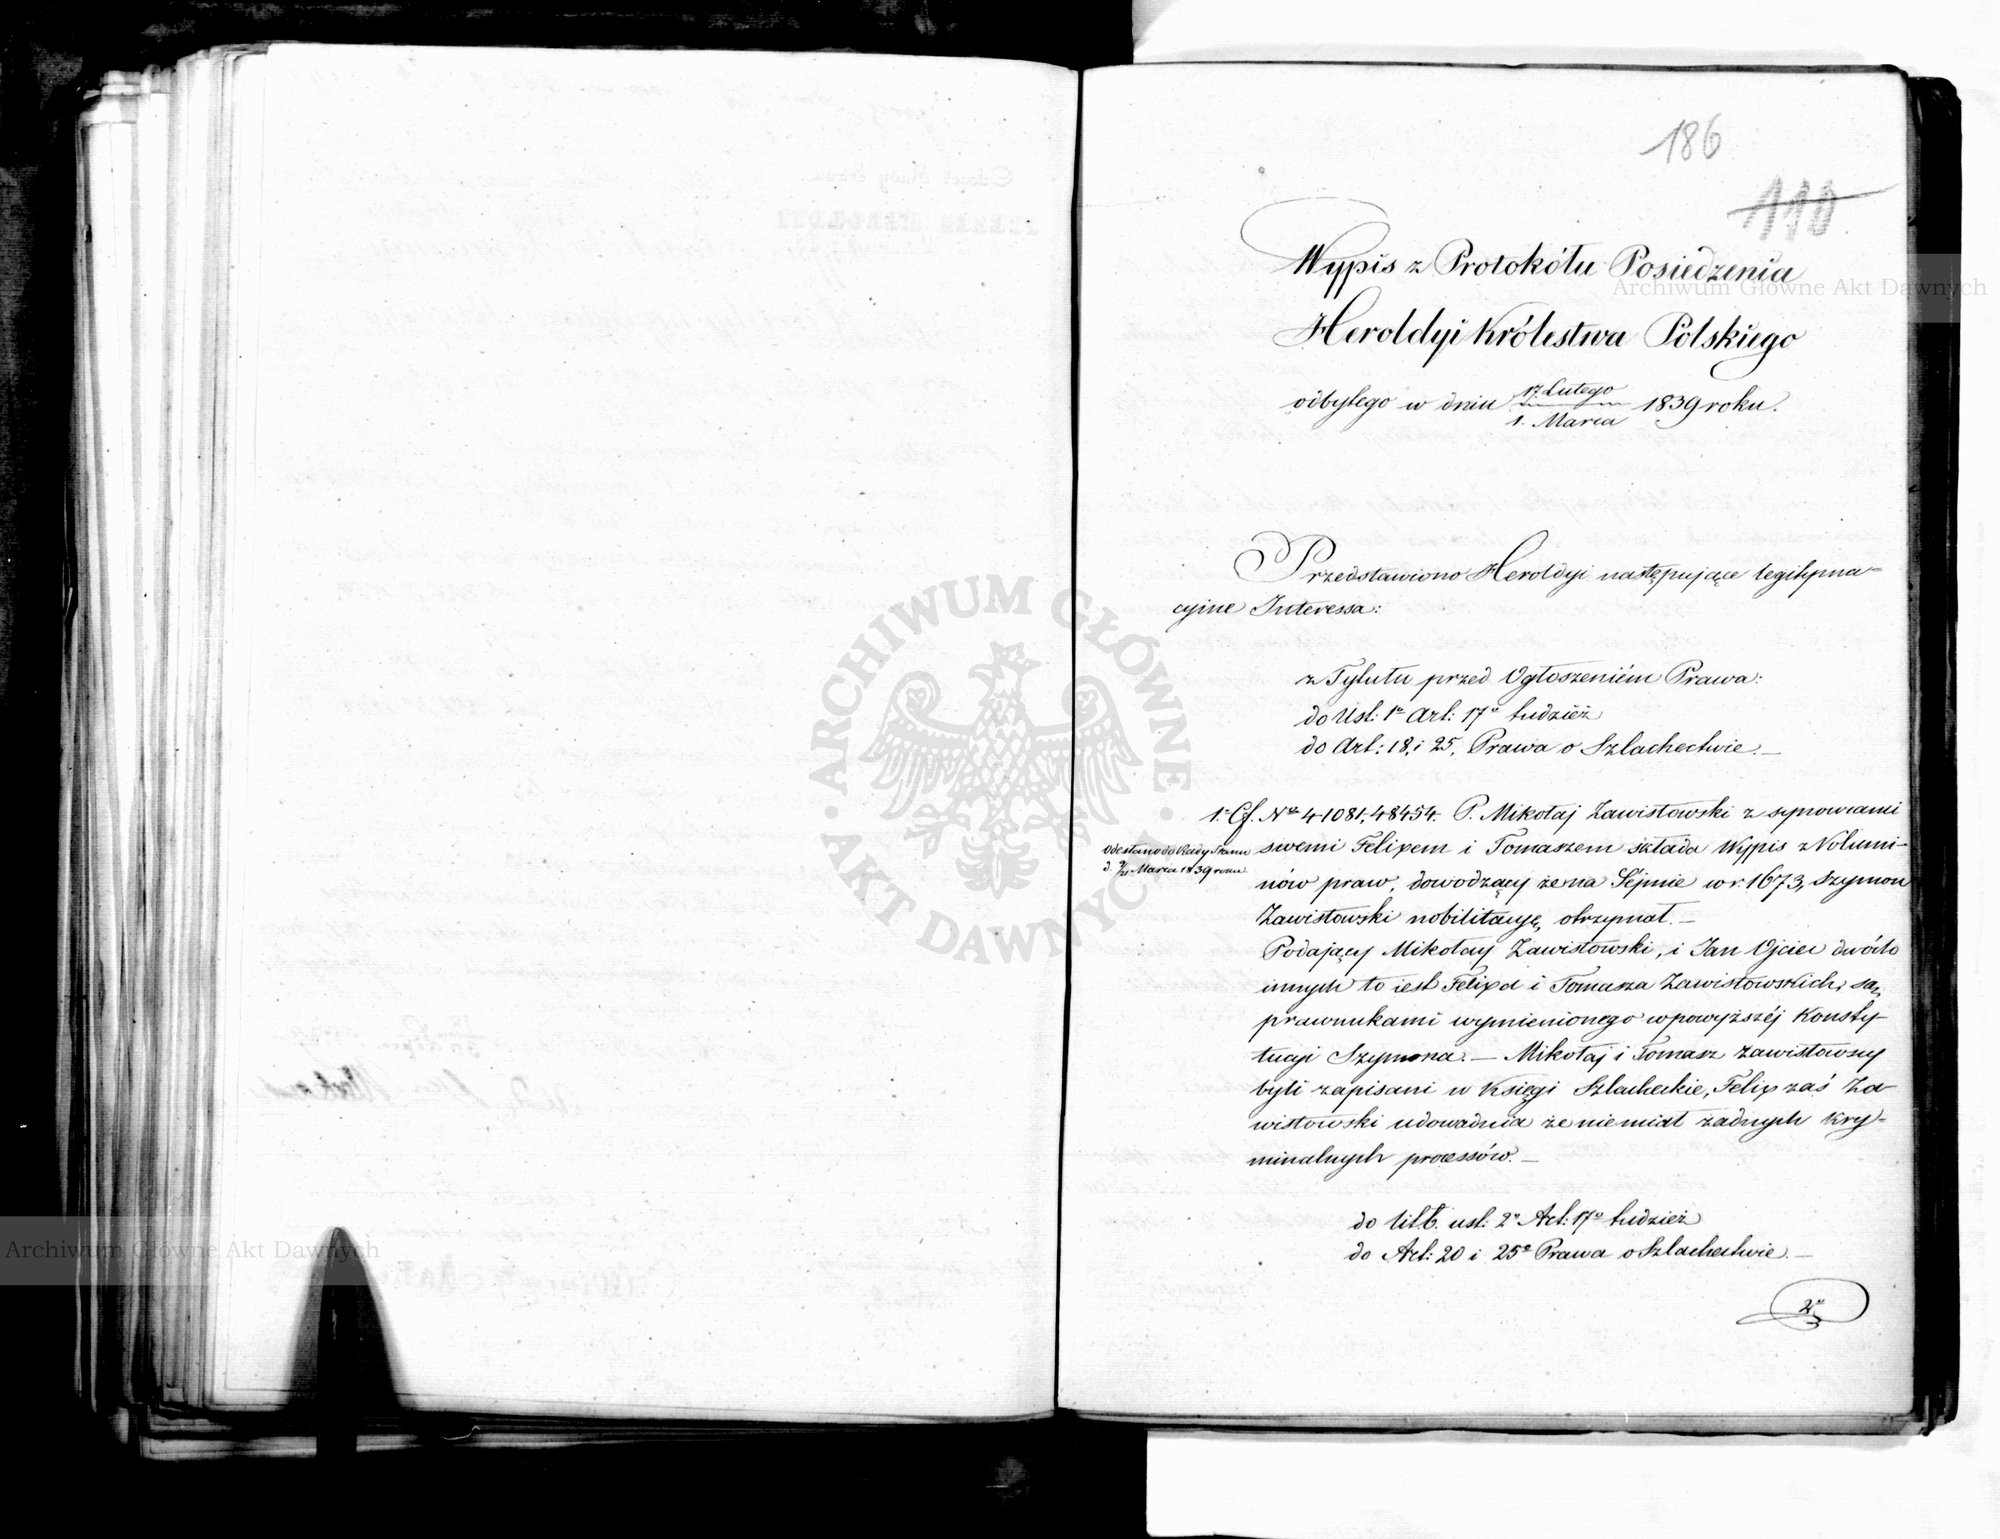 186
110
Wypis z Protokółu Posiedzenia
Heroldyi Królestwa Polskiego
odbytego w dniu 17. Lutego / 1. Marca 1839 roku.
Przedstawiono Heroldyi następujące legityma=
cyjne Interessa:
z Tytułu przed Ogłoszeniem Prawa:
do Ust: 1o Art: 17o tudzież
do Art: 18, i 25, Prawa o Szlachectwie.—
1. Cf. Nro 41081, 48454. P. Mikołaj Zawistowski z synowcami
Odesłano do Rady Stanu
d. Marca 1839 roku
swemi Felixem i Tomaszem składa Wypis z Volumi-
nów praw, dowodzący że na Séjmie w r. 1673, Szymon
Zawistowski nobilitacyę, otrzymał.—
Podający Mikołay Zawistowski, i Jan Ojciec dwóch
innych to iest Felixa i Tomasza Zawistowskich, są,
prawnukami wymienionego w powyższéj Konsty-
tucyi Szymona.— Mikołaj i Tomasz Zawistowscy
byli zapisani w Księgi Szlacheckie, Felix zaś Za-
wistowski udowadnia że niemiał żadnych kry-
minalnych processów.—
do ust: 2o Art: 17o tudzież
do Art: 20 i 25o Prawa o Szlachectwie.—
2o
Archiwum Główne Akt Dawnych
Archiwum Główne Akt Dawnych
ARCHIWUM GŁÓWNE · AKT DAWNYCH ·